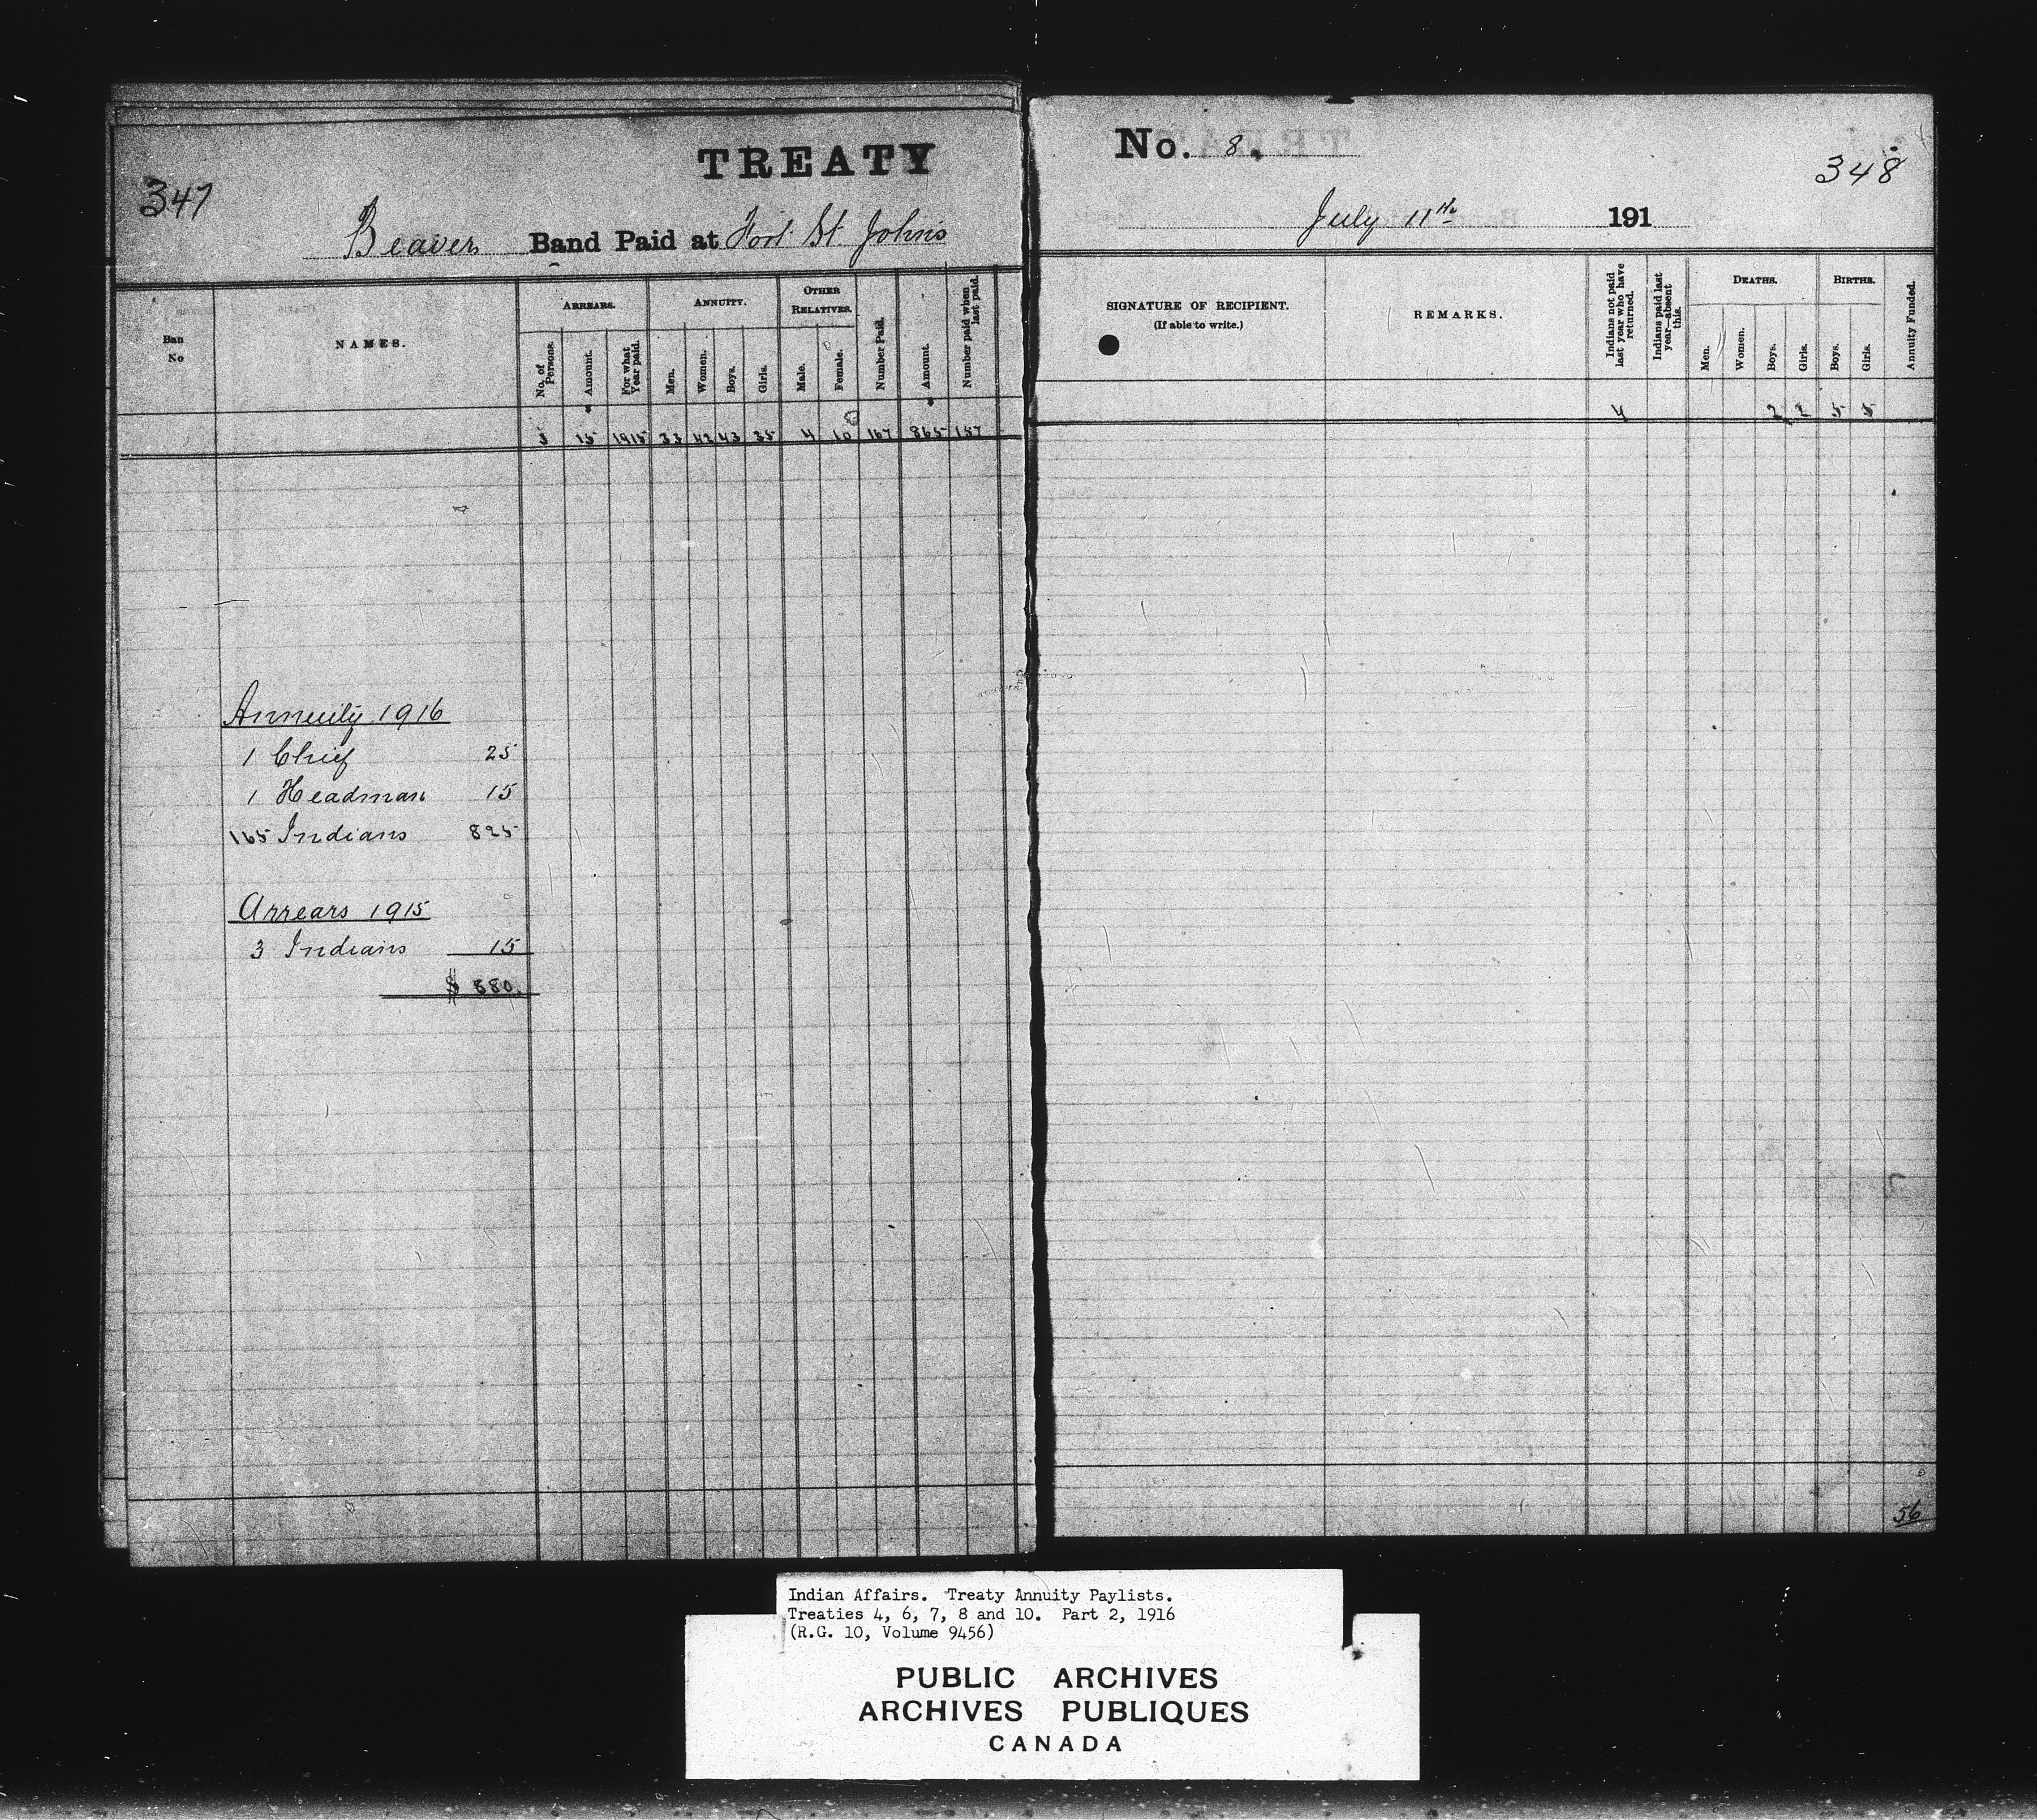 TREATY
347
Beaver Band Paid at Fort St Johns
Ban No
NAMES.
ARREARS.
No. of Persons.
Amount.
For what Year paid.
ANNUITY.
Men.
Women.
Boys.
Girls.
OTHER RELATIVES.
Male.
Female.
Number Paid.
Amount.
Number paid when last paid.
3 15 1915 33 42 43 35 4 10 167 865 157
Annuity 1916
1 Chief 25
1 Headman 15
165 Indians 825
Arrears 1915
3 Indians 15
$ 880.
No. 8.
348
July 11th 191
SIGNATURE OF RECIPIENT.
(If able to write.)
REMARKS.
Indians not paid last year who have returned.
Indians paid last year—absent this.
DEATHS.
Men.
Women.
Boys.
Girls.
BIRTHS.
Boys.
Girls.
Annuity Funded.
4 2 2 5 5
56
Indian Affairs. Treaty Annuity Paylists.
Treaties 4, 6, 7, 8 and 10. Part 2, 1916
(R.G. 10, Volume 9456)
PUBLIC ARCHIVES
ARCHIVES PUBLIQUES
CANADA